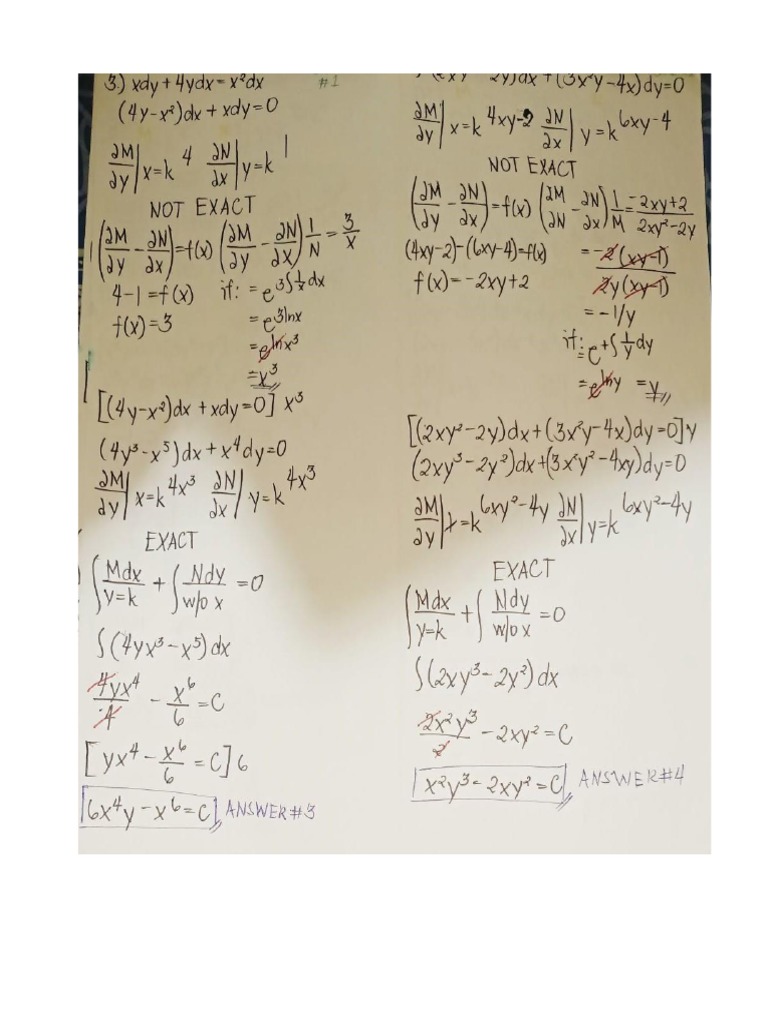 3.) xdy + 4ydx = x²dx #1
(4y-x²)dx + xdy = 0
∂M/∂y | x=k 4 ∂N/∂x | y=k 1
NOT EXACT
(∂M/∂y - ∂N/∂x) = f(x) (∂M/∂y - ∂N/∂x) 1/N = 3/x
4-1 = f(x) if: = e^3∫1/x dx
f(x) = 3 = e^3lnx
= e^lnx³
= x³
[(4y-x²)dx + xdy = 0] x³
(4y³-x⁵)dx + x⁴dy = 0
∂M/∂y | x=k 4x³ ∂N/∂x | y=k 4x³
EXACT
∫ Mdx/y=k + ∫ Ndy/w/o x = 0
∫(4yx³-x⁵)dx
4yx⁴/4 - x⁶/6 = C
[yx⁴ - x⁶/6 = C] 6
6x⁴y - x⁶ = C ANSWER #3
(2xy² - 2y)dx + (3x²y-4x)dy = 0
∂M/∂y | x=k 4xy-2 ∂N/∂x | y=k 6xy-4
NOT EXACT
(∂M/∂y - ∂N/∂x) = f(x) (∂M/∂N - ∂N/∂x) 1/M = -2xy+2/2xy²-2y
(4xy-2)-(6xy-4) = f(x) = -2(xy-1)/2y(xy-1)
f(x) = -2xy+2
= -1/y
if: = e^+∫1/y dy
= e^lny = y
[(2xy²-2y)dx + (3x²y-4x)dy = 0] y
(2xy³-2y²)dx + (3x²y²-4xy)dy = 0
∂M/∂y | x=k 6xy²-4y ∂N/∂x | y=k 6xy²-4y
EXACT
∫ Mdx/y=k + ∫ Ndy/w/o x = 0
∫(2xy³-2y²)dx
2x²y³/2 - 2xy² = C
x²y³ - 2xy² = C ANSWER #4